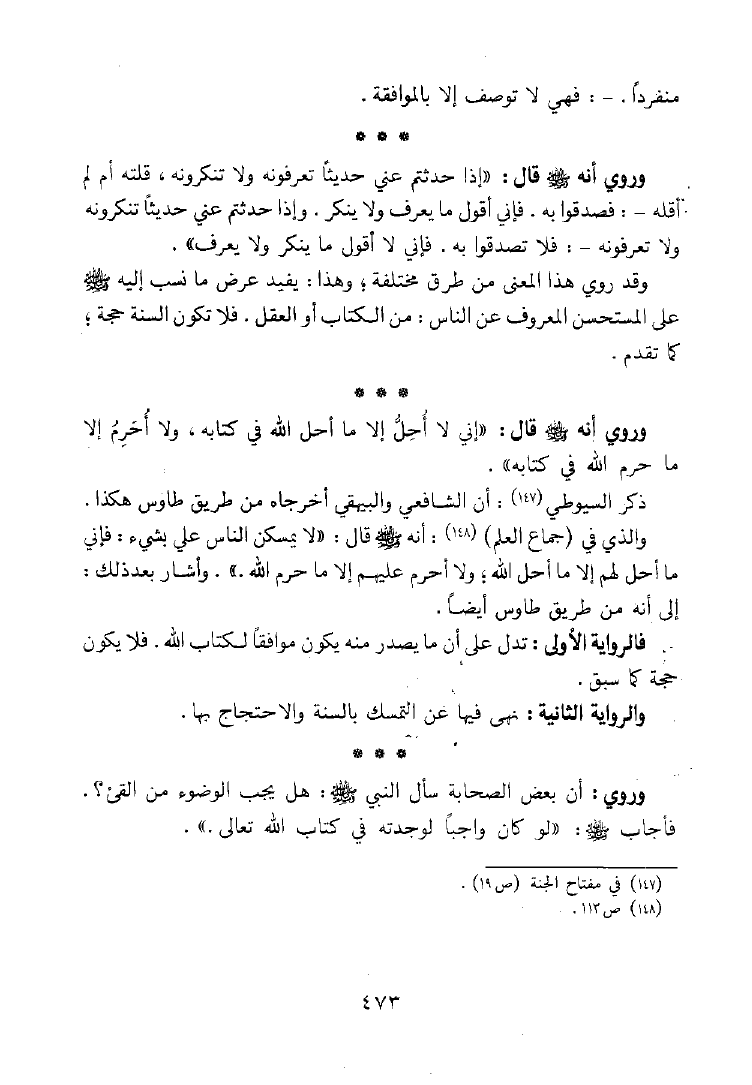 منفرداً . - : فهي لا توصف إلا بالموافقة .
* * *
وروي أنه ﷺ قال : «إذا حدثتم عني حديثاً تعرفونه ولا تنكرونه ، قلته أم لم
أقله - : فصدقوا به . فإني أقول ما يعرف ولا ينكر . وإذا حدثتم عني حديثاً تنكرونه
ولا تعرفونه - : فلا تصدقوا به . فإني لا أقول ما ينكر ولا يعرف» .
وقد روي هذا المعنى من طرق مختلفة ؛ وهذا : يفيد عرض ما نسب إليه ﷺ
على المستحسن المعروف عن الناس : من الكتاب أو العقل . فلا تكون السنة حجة ؛
كما تقدم .
* * *
وروي أنه ﷺ قال : «إني لا أُحِلُّ إلا ما أحل الله في كتابه ، ولا أُحَرِمُ إلا
ما حرم الله في كتابه» .
ذكر السيوطي (١٤٧) : أن الشافعي والبيهقي أخرجاه من طريق طاوس هكذا .
والذي في (جماع العلم) (١٤٨) : أنه ﷺ قال : «لا يمسكن الناس علي بشيء : فإني
ما أحل لهم إلا ما أحل الله ؛ ولا أحرم عليهم إلا ما حرم الله .» . وأشار بعد ذلك :
إلى أنه من طريق طاوس أيضاً .
فالرواية الأولى : تدل على أن ما يصدر منه يكون موافقاً لكتاب الله . فلا يكون
حجة كما سبق .
والرواية الثانية : نهى فيها عن التمسك بالسنة والاحتجاج بها .
* * *
وروي : أن بعض الصحابة سأل النبي ﷺ : هل يجب الوضوء من القئ؟ .
فأجاب ﷺ : «لو كان واجباً لوجدته في كتاب الله تعالى .» .
(١٤٧) في مفتاح الجنة (ص١٩) .
(١٤٨) ص١١٣ .
٤٧٣